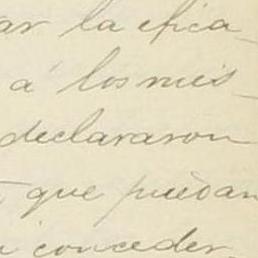 ar la efica-
á los mis-
declararon
que puedan
conceder